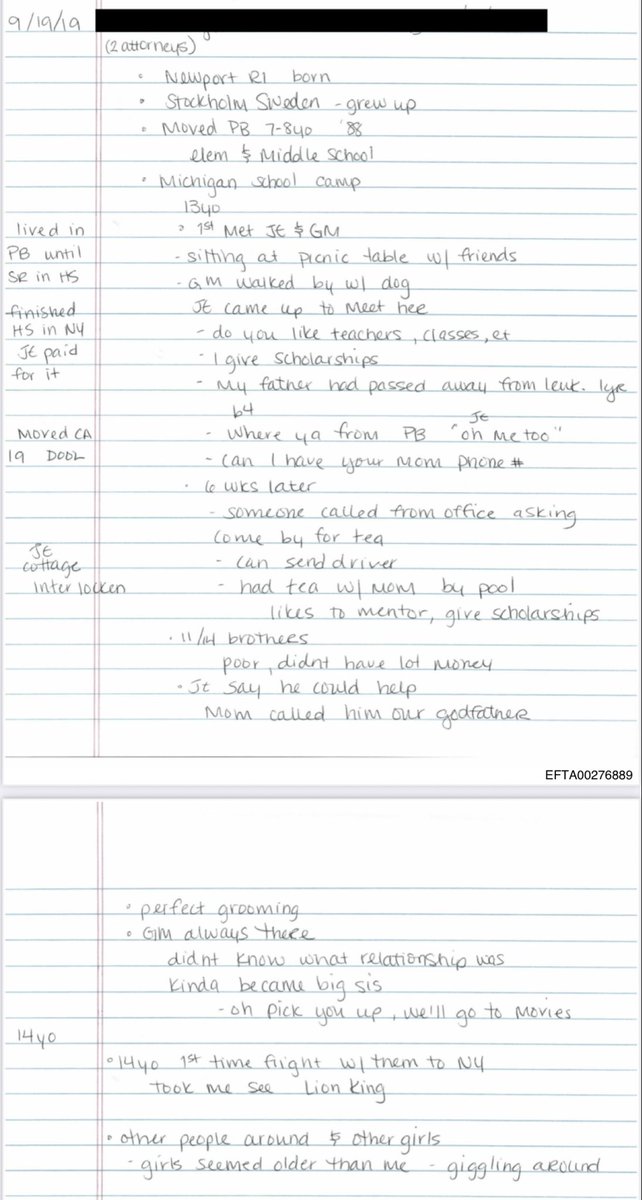 9/19/19
(2 attorneys)
◦ Newport RI born
• Stockholm Sweden - grew up
• Moved PB 7-8yo '88
elem & Middle School
• Michigan school camp
13yo
◦ 1st Met JE & GM
lived in
PB until
SR in HS
- sitting at picnic table w/ friends
- GM walked by w/ dog
JE came up to meet her
finished
HS in NY
JE paid
for it
- do you like teachers, classes, et
- I give scholarships
- My father had passed away from leuk. 1yr
b4
- Where ya from PB JE "oh me too"
Moved CA
19 DOOL
- can I have your mom phone #
• 6 wks later
- someone called from office asking
come by for tea
- can send driver
JE
cottage
Interlocken
- had tea w/ mom by pool
likes to mentor, give scholarships
• 11/14 brothers
poor, didnt have lot money
• JE say he could help
Mom called him our godfather
EFTA00276889
• perfect grooming
• GM always there
didnt know what relationship was
kinda became big sis
- oh pick you up, we'll go to movies
14yo
◦ 14yo 1st time flight w/ them to NY
took me see Lion King
• other people around & other girls
- girls seemed older than me - giggling around